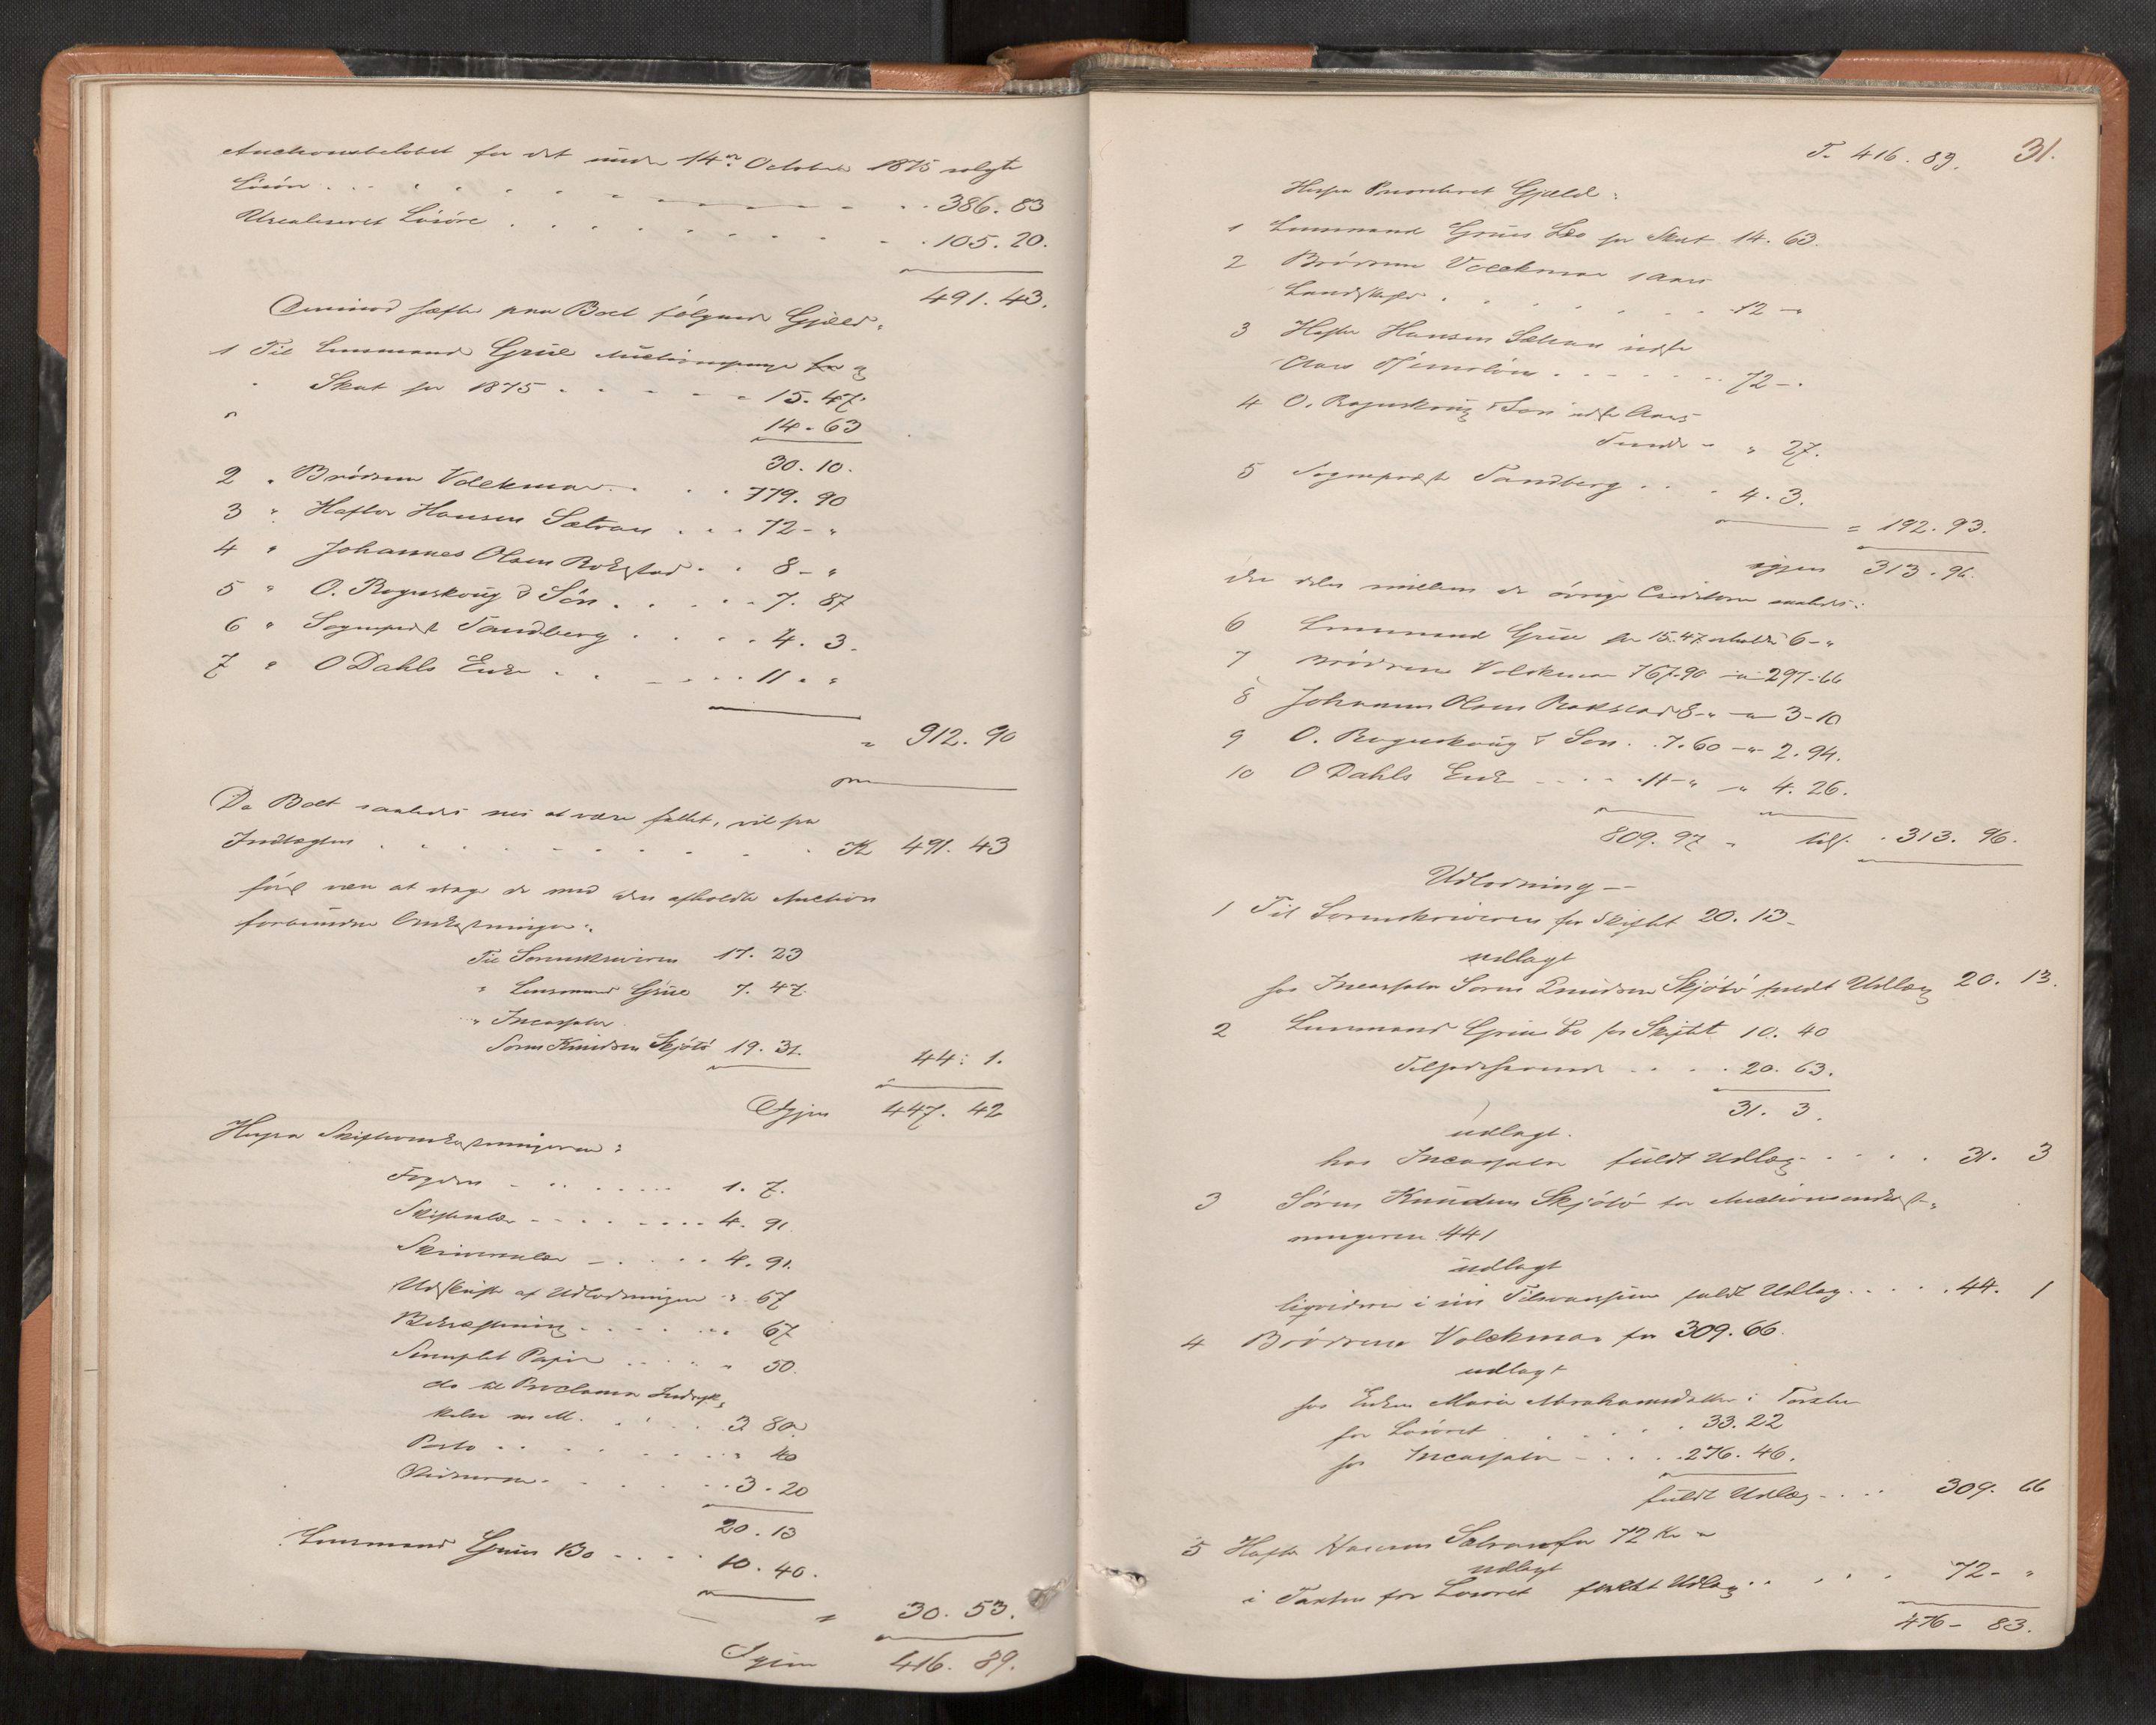 Auctionsbeløbet for det under 14de October 1875 solgte
Løsøre 386. 83
Urealiseret Løsøre 105. 20.
491. 43.
Derimod hæfter paa Boet følgende Gjæld:
1 Til Lensmand Grüe Auctionspenge og
Skat for 1875 15. 47.
" 14. 63
30. 10.
2 " Brødrene Volckmar 779. 90
3 " Haftor Hansen Sætran 72 - "
4 " Johannes Olsen Rokstad 8 - "
5 " O. Roguskoug & Søn 7. 87
6 " Sognepræst Sandberg 4. 3.
7 " O Dahls Enke 11 . "
= 912. 90
Da Boet saaledes sees at være fallit, vil fra
Indtægten K 491. 43
først være at drage de med den afholdte Auction
forbundne Omkostninger:
Til Sorenskriveren 17. 23
" Lensmand Grüe 7. 47.
" Incassator
Søren Knudsen Skjölö 19. 31. 44. 1.
Igjen 447. 42
Herfra Skifteomkostningerne:
Fogden 1. 7.
Skiftesalær 4. 91
Skriversalær 4. 91.
Udskrift af Udlodningen " 67
Bekræftning " 67
Stemplet Papir " 50.
do til Proclama Indryk-
kelse m M. 3 80.
Porto " 40
Vidnerne 3. 20
20. 13
Lensmand Grües Bo 10. 40.
= 30. 53.
Igjen 416. 89.
31.
T. 416. 89.
Herfra Prioriteret Gjæld:
1 Lensmand Grües Bo for Skat 14. 63.
2 Brødrene Volckmar 1 Aars
Landskyld 12 - "
3 Haftor Hansen Sætran
Aars Tjenerløn 72 - .
4 O. Roguskoug & Søn Aars
Tiende - " 27.
5 Sognepræst Sandberg 4. 3.
= 192. 93.
igjen 313. 96.
der deles mellem de øvrige Creditorer saaledes:
6 Lensmand Grüe for 15.47. 6 - "
7 Brødrene Volckmar 767.90 " 297-66
8 Johannes Olsen Rokstad 8 - " " 3-10
9 O. Roguskoug & Søn 7.60 " 2. 94.
10 O Dahls Enke 11 - " " 4. 26.
809. 97 = 313. 96.
Udlodning
1 Til Sorenskriveren for Skiftet 20. 13
udlagt
hos Incassator Søren Knudsen Skjölö fuldt Udlæg 20. 13.
2 Lensmand Grües Bo for Skiftet 10. 40
Tilgodehavende 20. 63.
31. 3.
udlagt.
hos Incassator fuldt Udlæg 31. 3
3 Søren Knudsen Skjölö for Auctionsomkost-
ningerne 44 1
udlagt
liqviderer i sin fuldt Udlæg 44. 1
4 Brødrene Volckmar for 309. 66.
udlagt
hos Enken Maria Abrahamsdatter i Taxten
for Løsøret 33. 22
hos Incassator 276. 46.
fuldt Udlæg 309. 66
5 Hafto Hansen Sætran for 72 Kr "
udlagt
i Taxten for Løsøret fuldt Udlæg 72 - "
476 - 83.